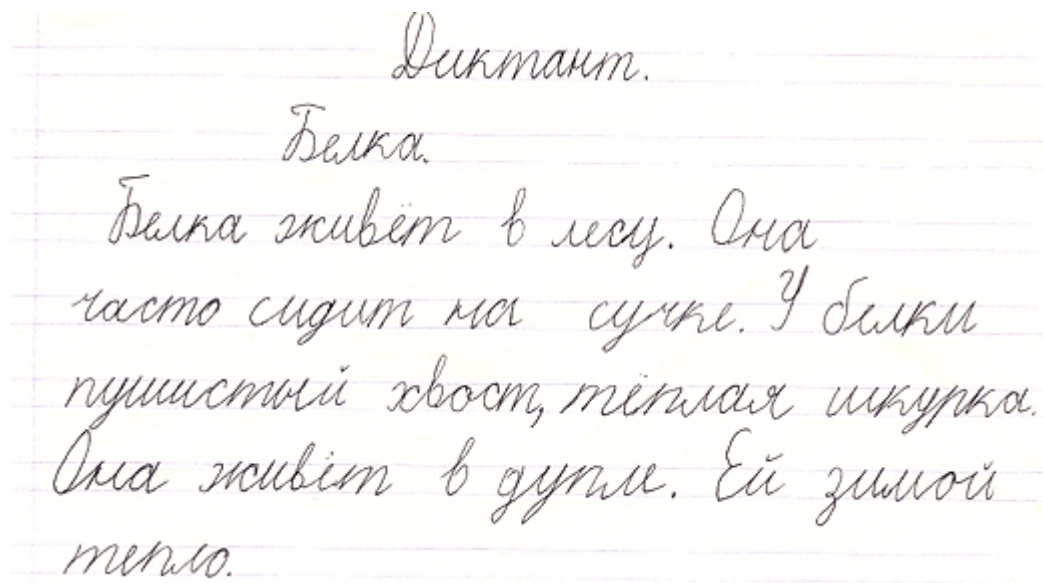 Диктант.
Белка.
Белка живёт в лесу. Она
часто сидит на сучке. У белки
пушистый хвост, тёплая шкурка.
Она живёт в дупле. Ей зимой
тепло.